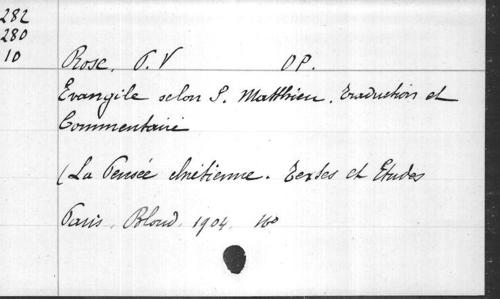 282
280
10
Rose. P. V OP.
Evangile selon S. Matthieu. Traduction et
Commentaire
(La Pensée chrétienne. Textes et Etudes
Paris. Bloud. 1904. 16º